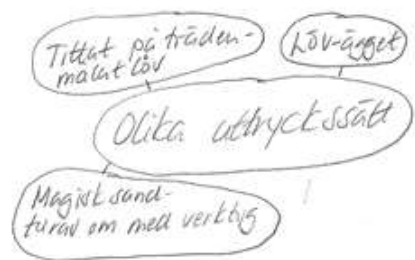 Tittat på träden-
målat löv
Löv-ägget
Olika uttryckssätt
Magisk sand-
om med verktyg